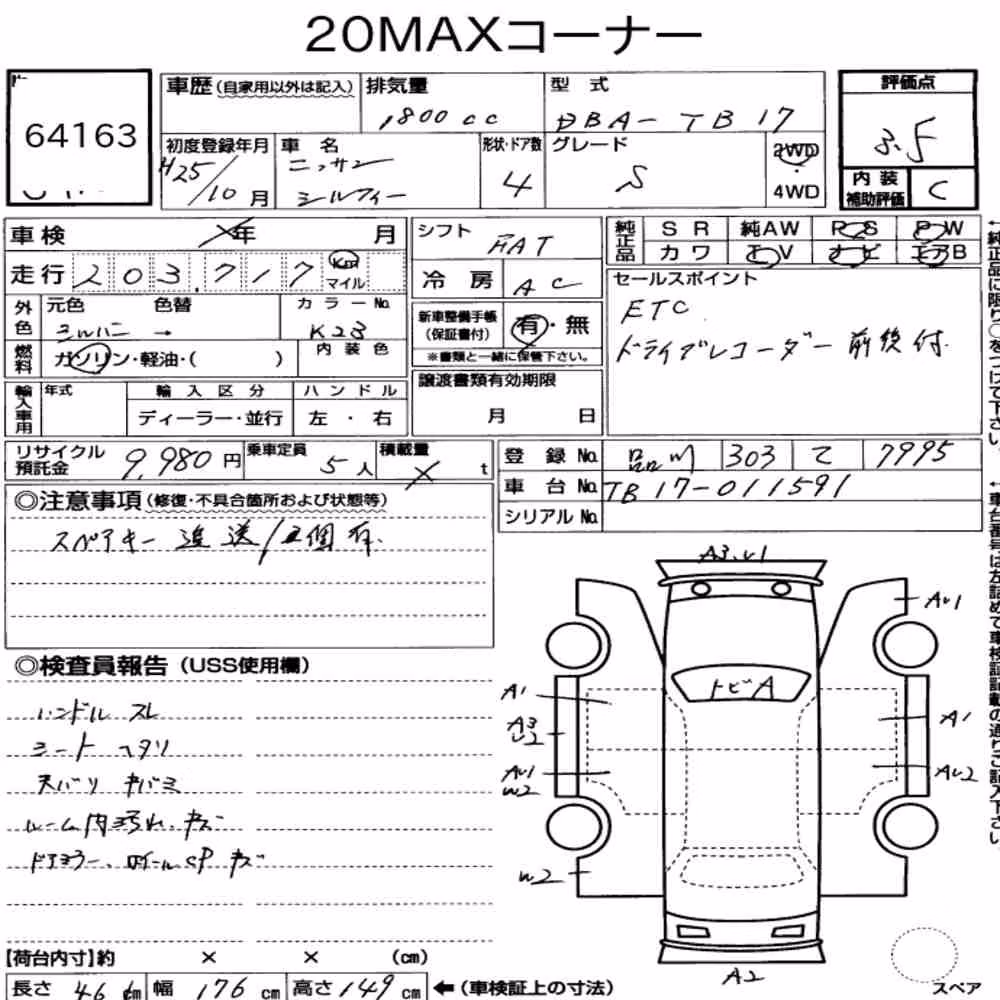 20MAXコーナー
64163
車歴(自家用以外は記入) 排気量 型式 評価点
1800cc DBA-TB17 3.5
初度登録年月 車名 形状・ドア数 グレード 2WD
H25/10月 ニッサン シルフィー 4 S 4WD
内装補助評価 C
車検 年 月 シフト FAT 純正品 SR 純AW PS PW
カワ TV ナビ エアB
走行 203,717 Km マイル 冷房 AC セールスポイント
外色 元色 色替 カラーNo. 新車整備手帳(保証書付) 有・無 ETC
シルバー → K23 ※書類と一緒に保管下さい。 ドライブレコーダー前後付
燃料 ガソリン・軽油・( ) 内装色
輸入車用 年式 輸入区分 ハンドル 譲渡書類有効期限
ディーラー・並行 左・右 月 日
リサイクル預託金 9,980円 乗車定員 5人 積載量 t 登録No. 品川 303 て 7995
車台No. TB17-011591
シリアルNo.
◎注意事項(修復・不具合箇所および状態等)
スペアキー進送/1個有.
←純正品に限り○をつけて下さい。
←車台番号は左詰めで車検証記載の通りご記入下さい。
◎検査員報告(USS使用欄)
ハンドル スレ
シート ヘタリ
天バリ キバミ
ルーム内汚れ、キズ
ドアミラー、ホイールCP キズ
A3.U1
AU1
トビA
A1
A3 U2
AU1 W2
W2
A1
AU2
A2
スペア
【荷台内寸】約 × × (cm)
長さ 46 cm 幅 176 cm 高さ 149 cm ←(車検証上の寸法)